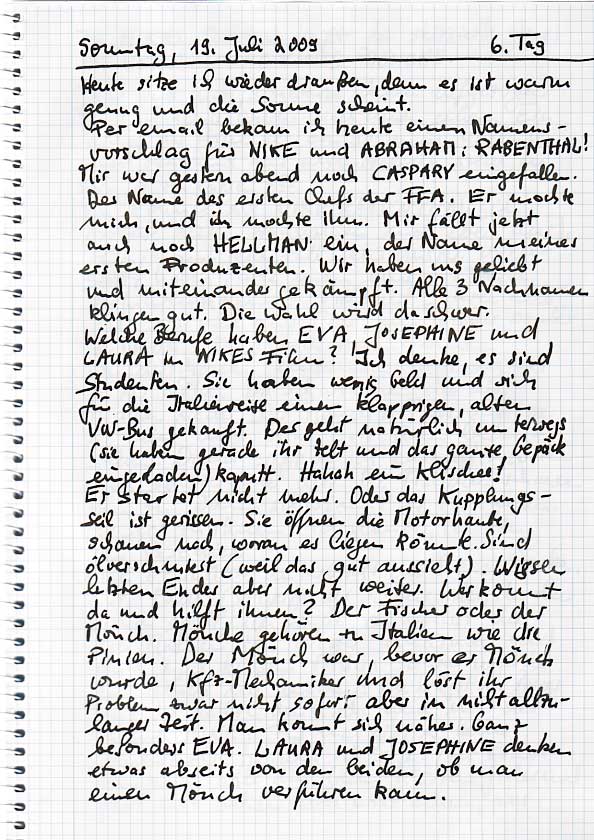 Sonntag, 19. Juli 2009 6. Tag
Heute sitze ich wieder draußen, denn es ist warm
genug und die Sonne scheint.
Per email bekam ich heute einen Namens-
vorschlag für NIKE und ABRAHAM: RABENTHAL!
Mir war gestern abend noch CASPARY eingefallen.
Der Name des ersten Chefs der FFA. Er mochte
mich, und ich mochte ihn. Mir fällt jetzt
auch noch HELLMAN ein, der Name meines
ersten Produzenten. Wir haben uns geliebt
und miteinander gekämpft. Alle 3 Nachnamen
klingen gut. Die Wahl wird da schwer.
Welche Berufe haben EVA, JOSEPHINE und
LAURA in NIKES Film? Ich denke, es sind
Studenten. Sie haben wenig Geld und sich
für die Italienreise einen klapprigen, alten
VW-Bus gekauft. Der geht natürlich unterwegs
(sie haben gerade ihr Zelt und das ganze Gepäck
eingeladen) kaputt. Hahah ein Klischee!
Er startet nicht mehr. Oder das Kupplungs-
seil ist gerissen. Sie öffnen die Motorhaube,
schauen nach, woran es liegen könnte. Sind
ölverschmiert (weil das gut aussieht). Wissen
letzten Endes aber nicht weiter. Wer kommt
da und hilft ihnen? Der Fischer oder der
Mönch. Mönche gehören zu Italien wie die
Pinien. Der Mönch war, bevor er Mönch
wurde, Kfz-Mechaniker und löst ihr
Problem zwar nicht sofort aber in nicht allzu-
langer Zeit. Man kommt sich näher. Ganz
besonders EVA. LAURA und JOSEPHINE denken
etwas abseits von den beiden, ob man
einen Mönch verführen kann.